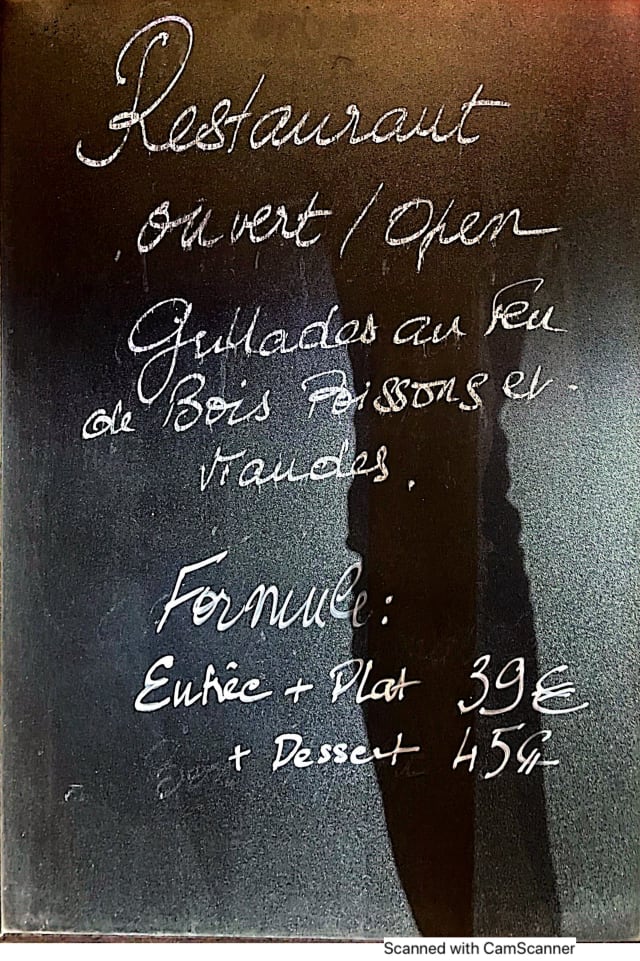 Restaurant
ouvert / Open
Grillades au Feu
de Bois Poissons et
viandes.
Formule:
Entrée + Plat 39€
+ Dessert 45€
Scanned with CamScanner